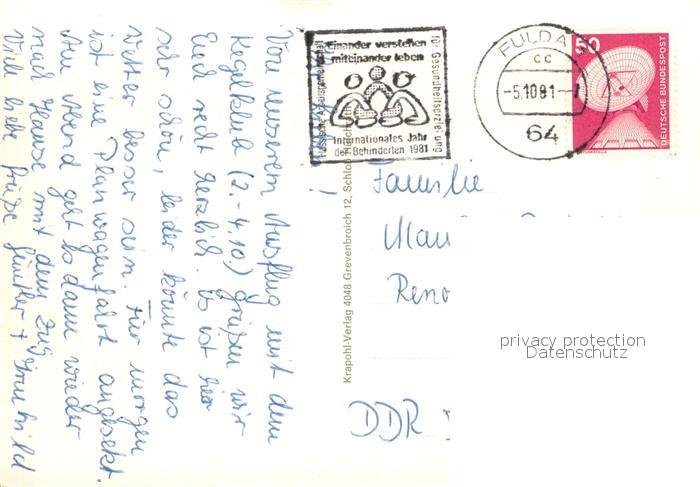 Von unserem Ausflug mit dem
Kegelklub (2.-4.10.) grüßen wir
Euch recht herzlich. Es ist hier
sehr schön, leider könnte das
Wetter besser sein. Für morgen
ist eine Planwagenfahrt angesetzt.
Am Abend geht es dann wieder
nach Hause mit dem Zug
Viele liebe Grüße Günther + Irmhild
Krapohl-Verlag 4048 Grevenbroich 12, Schloß
Einander verstehen
miteinander leben
Internationales Jahr
der Behinderten 1981
für Gesundheitserziehung
FULDA
cc
-5.10.81-
64
50
DEUTSCHE BUNDESPOST
Familie
Mau
Reno
DDR
privacy protection
Datenschutz